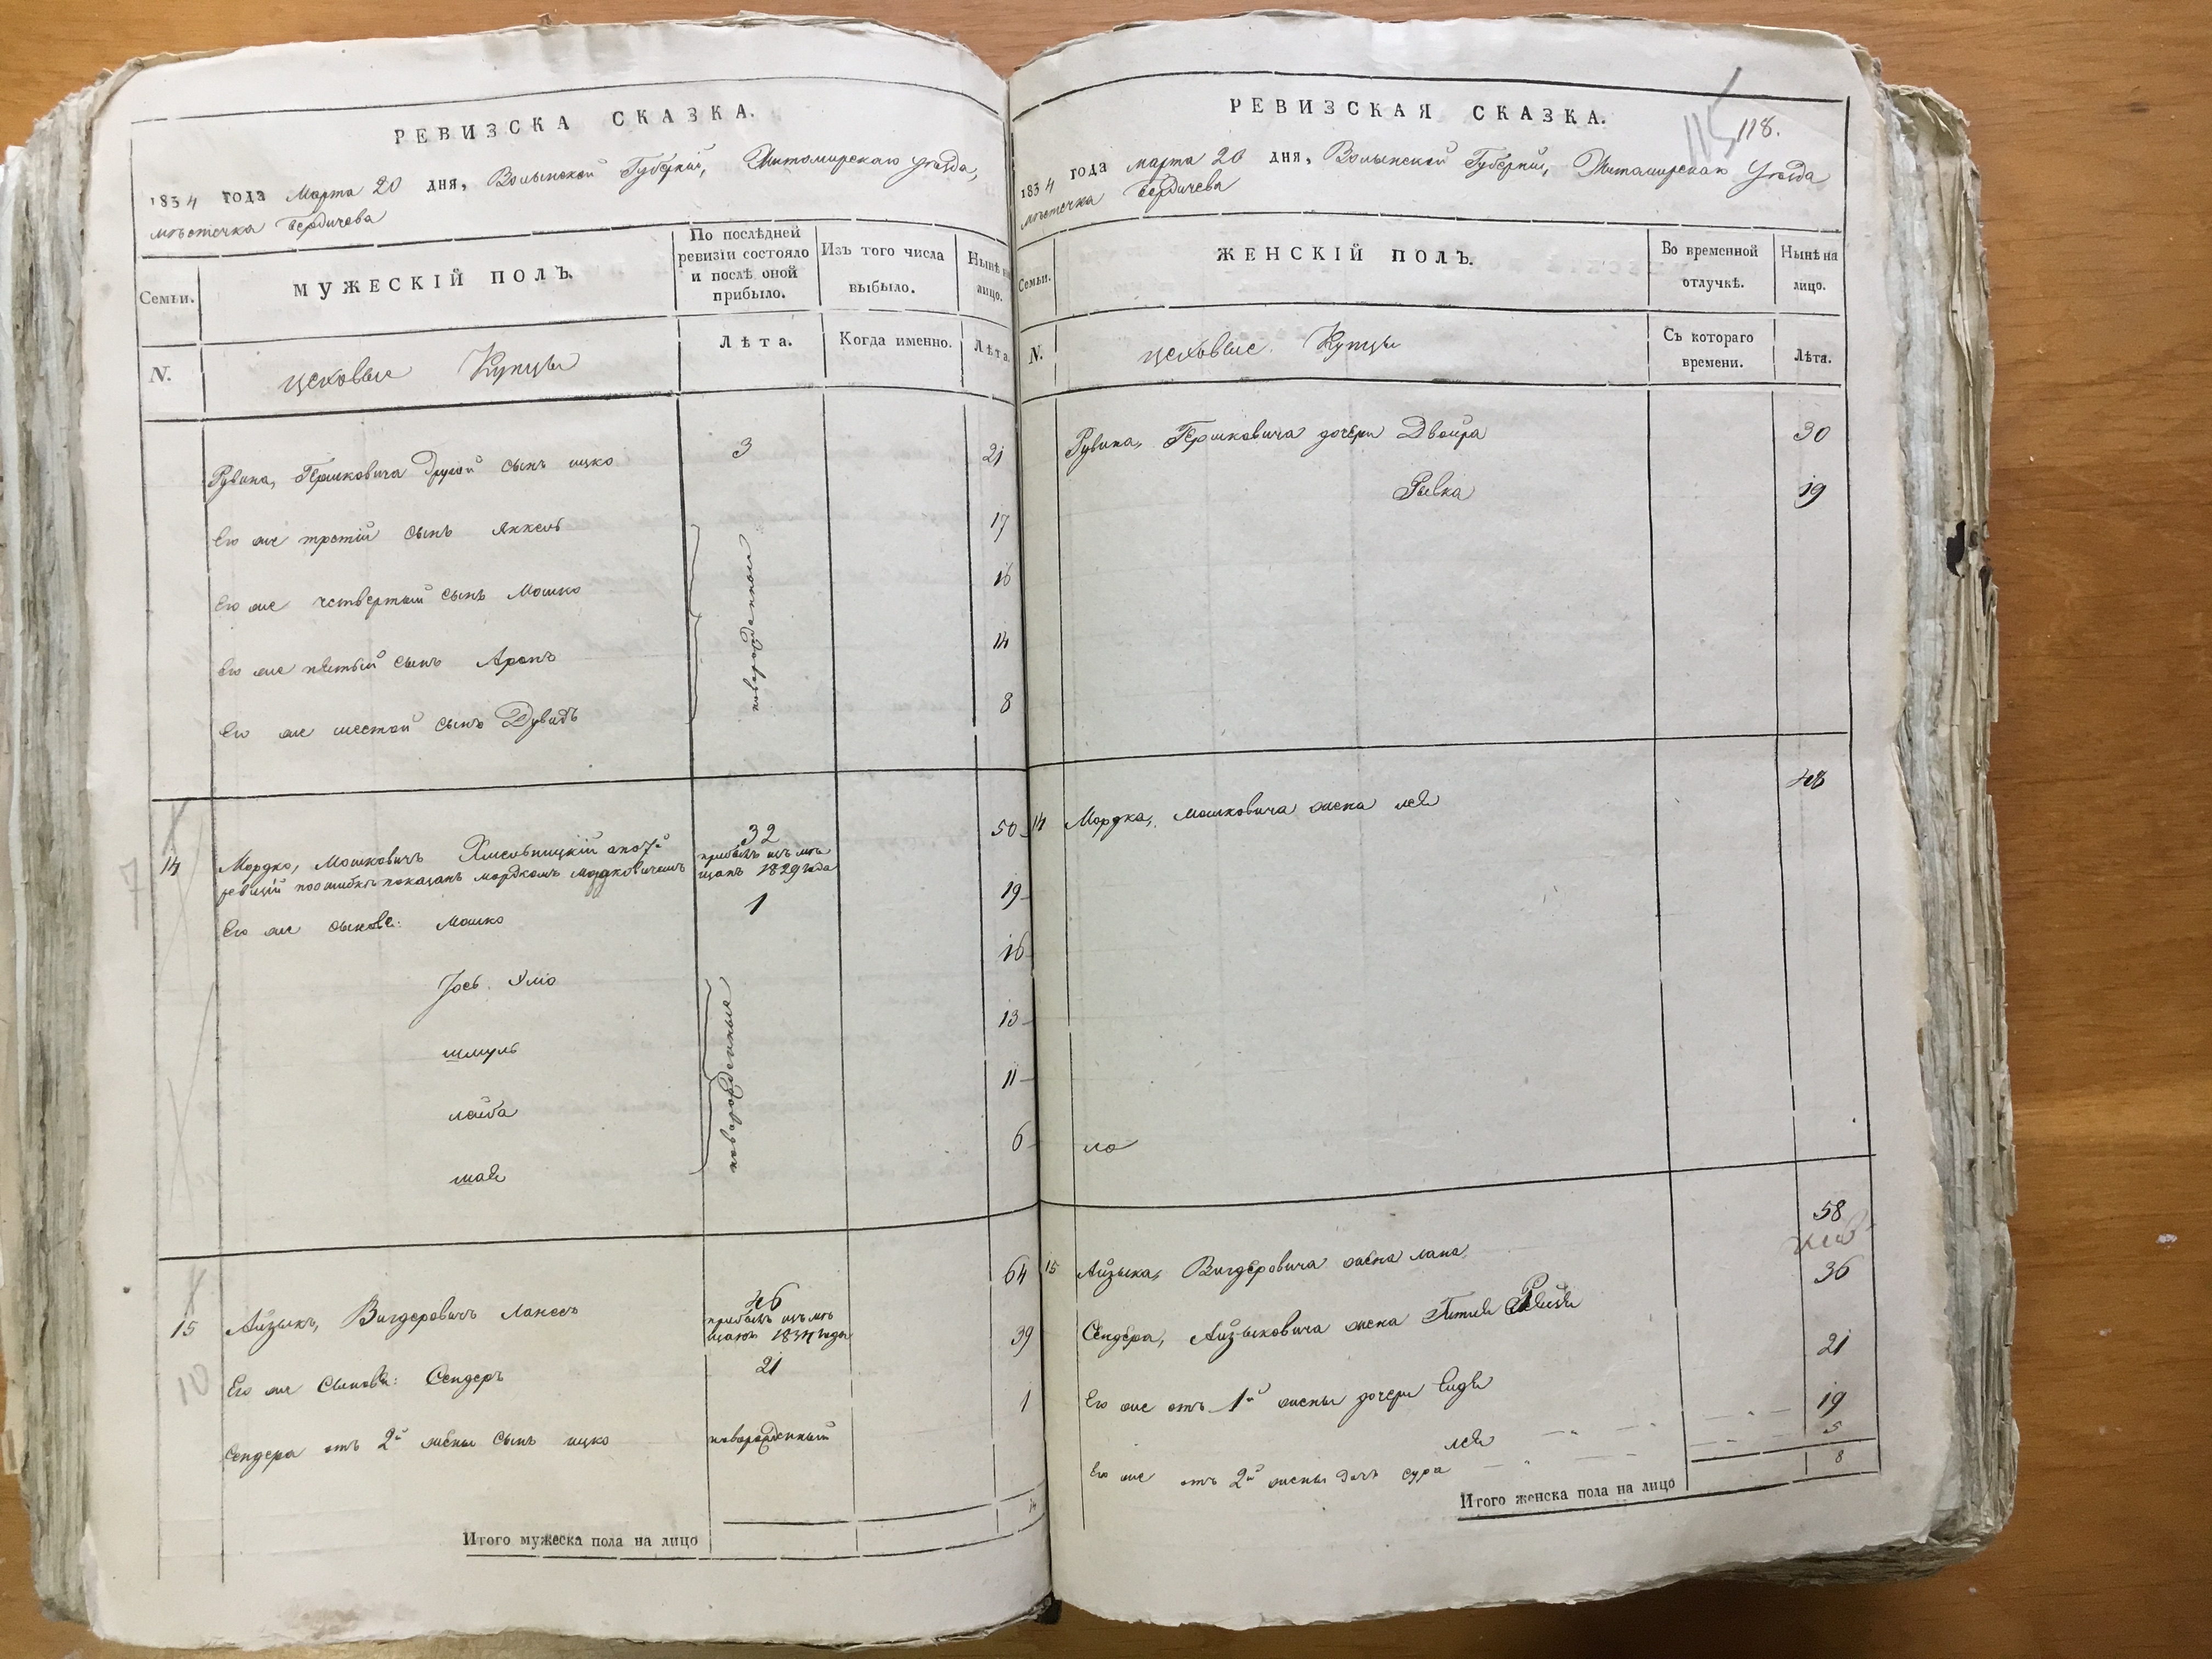 РЕВИЗСКА СКАЗКА.
1834 года Марта 20 дня, Волынской Губерніи, Житомирскаго уѣзда,
мѣстечка Бердичева
Семьи.
МУЖЕСКІЙ ПОЛЪ.
По послѣдней ревизіи состояло и послѣ оной прибыло.
Изъ того числа выбыло.
Нынѣ на лицо.
N.
цеховые Купцы
Лѣта.
Когда именно.
Лѣта.
Рувина, Гершковича другой сынъ ицко 3 21
Его же третій сынъ Янкель 17
Его же четвертый сынъ Мошко 16
Его же пятый сынъ Аронъ 14
Его же шестой сынъ Дувидъ 8
новорожденныи
14 Мордко, Мошковичъ Хмельницкій а по 7й 32 50
ревизіи по ошибкѣ показанъ мордкомъ мордковичемъ прибылъ изъ мѣщанъ 1829 года
Его же сыновья: Мошко 1 19
Іось 16
шмуль 13
лейба 11
шая 6
новорожденные
15 Айзыкъ, Вигдоровичъ 46 64
прибылъ изъ мѣщанъ 1834 года
10
Его же сыновья: Сендеръ 21 39
Сендера отъ 2й жены сынъ ицко новорожденный 1
Итого мужеска пола на лицо 14
РЕВИЗСКАЯ СКАЗКА.
115 118.
1834 года марта 20 дня, Волынской Губерніи, Житомирскаго Уѣзда
мѣстечка Бердичева
Семьи.
ЖЕНСКІЙ ПОЛЪ.
Во временной отлучкѣ.
Нынѣ на лицо.
N.
цеховые Купцы
Съ котораго времени.
Лѣта.
Рувина, Гершковича дочери Двойра 30
Рывка 19
14 Мордка, мошковича жена лея 48
15 Айзыка, Вигдоровича жена 58
Сендера, Айзыковича жена 36
Его же отъ 1й жены дочери 21
лея 19
Его же отъ 2й жены дочь сура 5
Итого женска пола на лицо 8